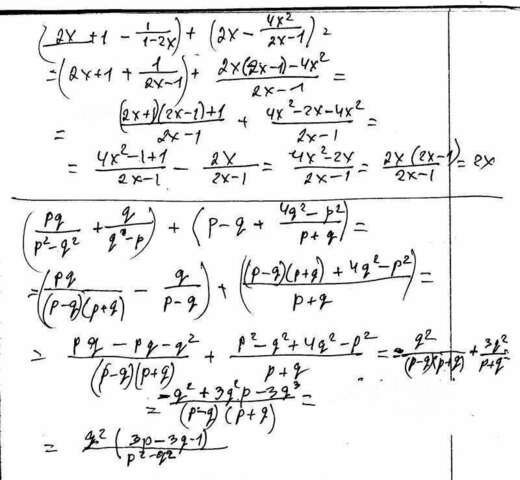 (2x+1 - 1/(1-2x)) + (2x - 4x²/(2x-1)) =
= (2x+1 + 1/(2x-1)) + (2x(2x-1)-4x²)/(2x-1) =
= ((2x+1)(2x-1)+1)/(2x-1) + (4x²-2x-4x²)/(2x-1) =
= (4x²-1+1)/(2x-1) - 2x/(2x-1) = (4x²-2x)/(2x-1) = (2x(2x-1))/(2x-1) = 2x
(pq/(p²-q²) + q/(q-p)) + (p-q + (4q²-p²)/(p+q)) =
= (pq/((p-q)(p+q)) - q/(p-q)) + (((p-q)(p+q) + 4q²-p²)/(p+q)) =
= (pq - pq - q²)/((p-q)(p+q)) + (p²-q²+4q²-p²)/(p+q) = - q²/((p-q)(p+q)) + 3q²/(p+q) =
= (-q² + 3q²p - 3q³)/((p-q)(p+q)) =
= (q²(3p-3q-1))/(p²-q²)